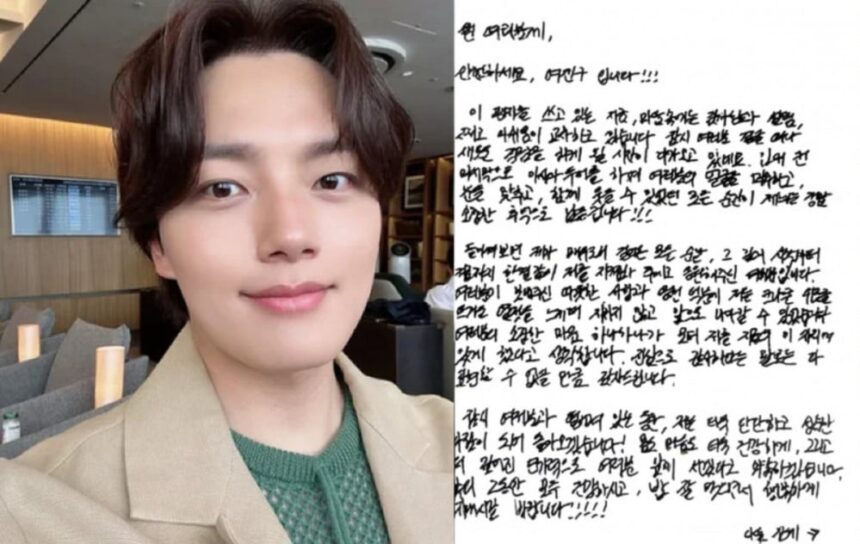 원 여러분께,
안녕하세요, 여진구 입니다!!!
이 편지를 쓰고 있는 지금, 마음속에는 감사함과 설렘,
그리고 아쉬움이 교차하고 있습니다. 잠시 여러분 곁을 떠나
새로운 경험을 하게 될 시간이 다가오고 있네요. 입대 전
마지막으로 아시아 투어를 하며 여러분의 얼굴을 마주하고,
눈을 맞추고, 함께 웃을 수 있었던 모든 순간이 저에겐 정말
소중한 추억으로 남을겁니다!!!
돌이켜보면 제가 배우로서 모든 순간, 그 길의 시작부터
지금까지 한결같이 저를 지켜봐 주시고 응원해주신 여러분입니다.
여러분이 보내주신 따뜻한 사랑과 응원 덕분에 저는 크나큰 위로를
열정을 느끼며 지치지 않고 앞으로 나아갈 수 있었습니다
여러분의 소중한 마음 하나하나가 모여 저를 지금의 이 자리에
있게 했다고 생각합니다. 진심으로 감사하다는 말로는 다
표현할 수 없을 만큼 감사드립니다.
잠시 여러분과 떨어져 있는 동안, 저는 더욱 단단하고 성숙한
사람이 되어 돌아오겠습니다! 몸도 마음도 더욱 건강하게, 그리고
더 깊어진 연기력으로 여러분 앞에 서겠다고 약속하겠습니다.
그동안 모두 건강하시고, 밥 잘 행복하게
바랍니다!!!!!
다음 →